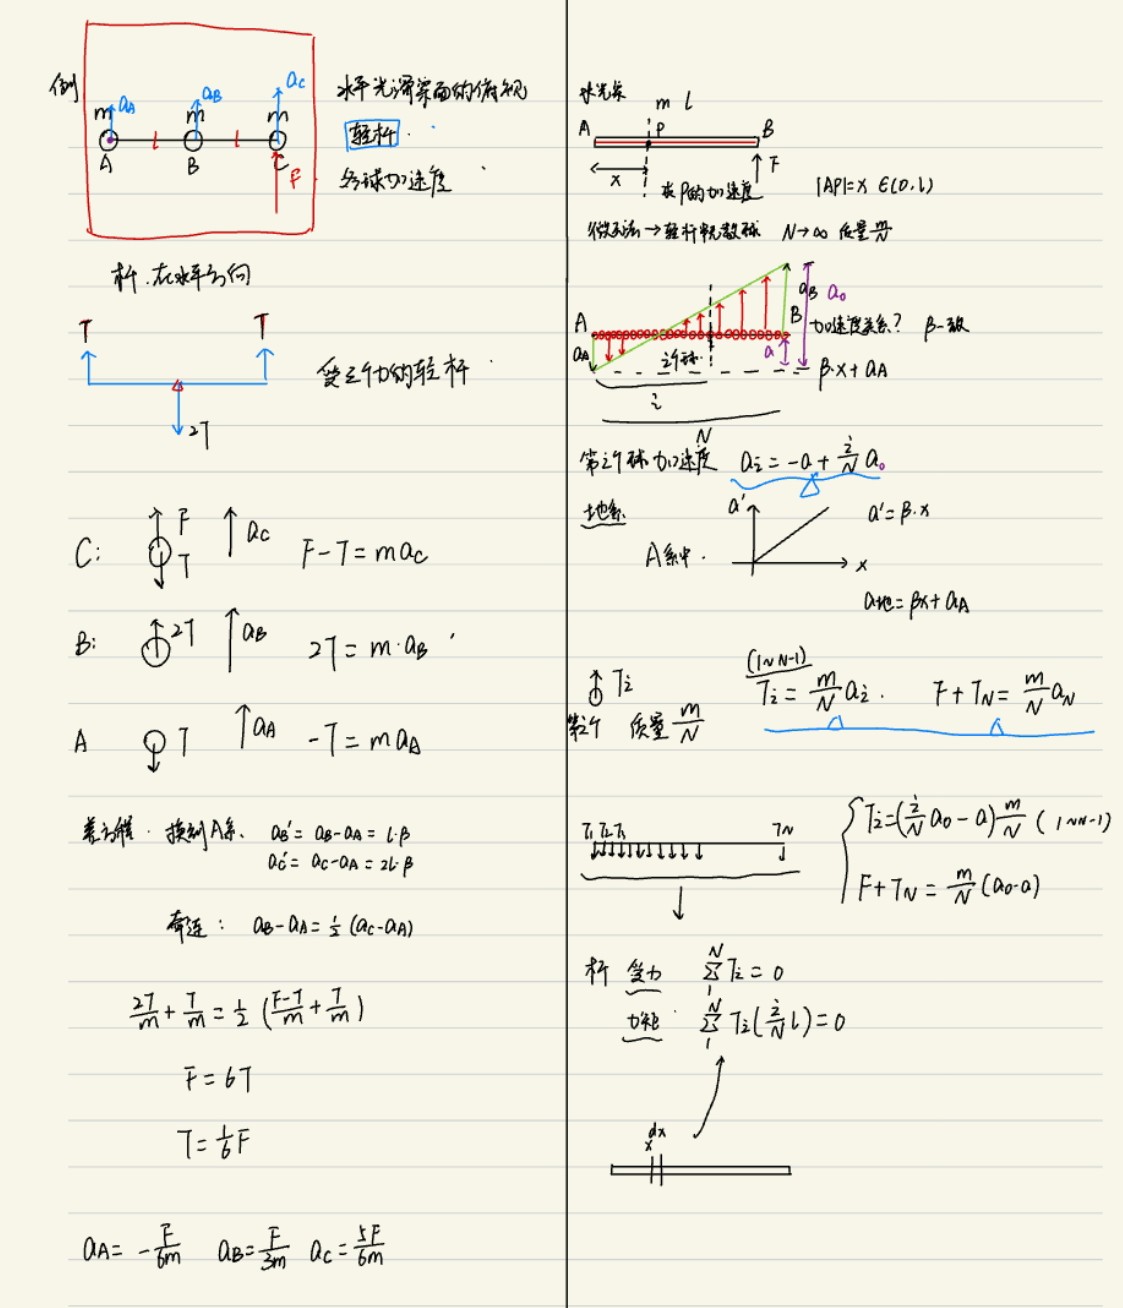 例
m aA
m aB
m aC
A l B l C
F
水平光滑桌面的俯视
轻杆.
各球加速度
杆.在水平方向
T T
2T
受三个力的轻杆
C: F T aC F-T=maC
B: 2T aB 2T=m·aB
A T aA -T=maA
差方程. 换到A系. aB'=aB-aA=l·β
aC'=aC-aA=2l·β
牵连: aB-aA=½(aC-aA)
2T/m+T/m=½(F-T/m+T/m)
F=6T
T=⅙F
aA=-F/6m aB=F/3m aC=5F/6m
水光桌
m l
A P B
x F
求P的加速度 |AP|=x ∈(0,l)
微元法→轻杆串无数球 N→∞ 质量m/N
A aA B aB a0 a
加速度关系? β一致
i个球
β·x+aA
i
N
第i个球加速度 ai=-a+i/N a0
地系
A系中. a' x a'=β·x
a地=βx+aA
Ti
第i个 质量m/N
(1~N-1)
Ti=m/N ai. F+TN=m/N aN
T1 T2 T3 TN
Ti=(i/N a0-a)m/N (1~N-1)
F+TN=m/N(a0-a)
杆 受力 N∑1 Ti=0
力矩 N∑1 Ti(i/N l)=0
x dx